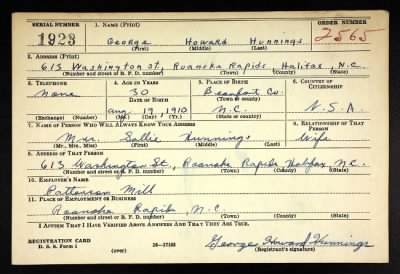 SERIAL NUMBER 1. NAME (Print) ORDER NUMBER
1923 George Howard Hunnings 2565
(First) (Middle) (Last)
2. ADDRESS (Print)
613 Washington St, Roanoke Rapids, Halifax, N.C.
(Number and street or R. F. D. number) (Town) (County) (State)
3. TELEPHONE 4. AGE IN YEARS 5. PLACE OF BIRTH 6. COUNTRY OF CITIZENSHIP
None 30 Beaufort Co.
DATE OF BIRTH (Town or county)
Aug 19, 1910 N.C. U.S.A
(Exchange) (Number) (Mo.) (Day) (Yr.) (State or country)
7. NAME OF PERSON WHO WILL ALWAYS KNOW YOUR ADDRESS 8. RELATIONSHIP OF THAT PERSON
Mrs. Sallie Hunnings Wife
(Mr., Mrs., Miss) (First) (Middle) (Last)
9. ADDRESS OF THAT PERSON
613 Washington St., Roanoke Rapids Halifax N.C.
(Number and street or R. F. D. number) (Town) (County) (State)
10. EMPLOYER'S NAME
Patterson Mill
11. PLACE OF EMPLOYMENT OR BUSINESS
Roanoke Rapids, N.C.
(Number and street or R. F. D. number) (Town) (County) (State)
I AFFIRM THAT I HAVE VERIFIED ABOVE ANSWERS AND THAT THEY ARE TRUE.
REGISTRATION CARD George Howard Hunnings
D. S. S. Form 1 (over) 16—17105 (Registrant's signature)